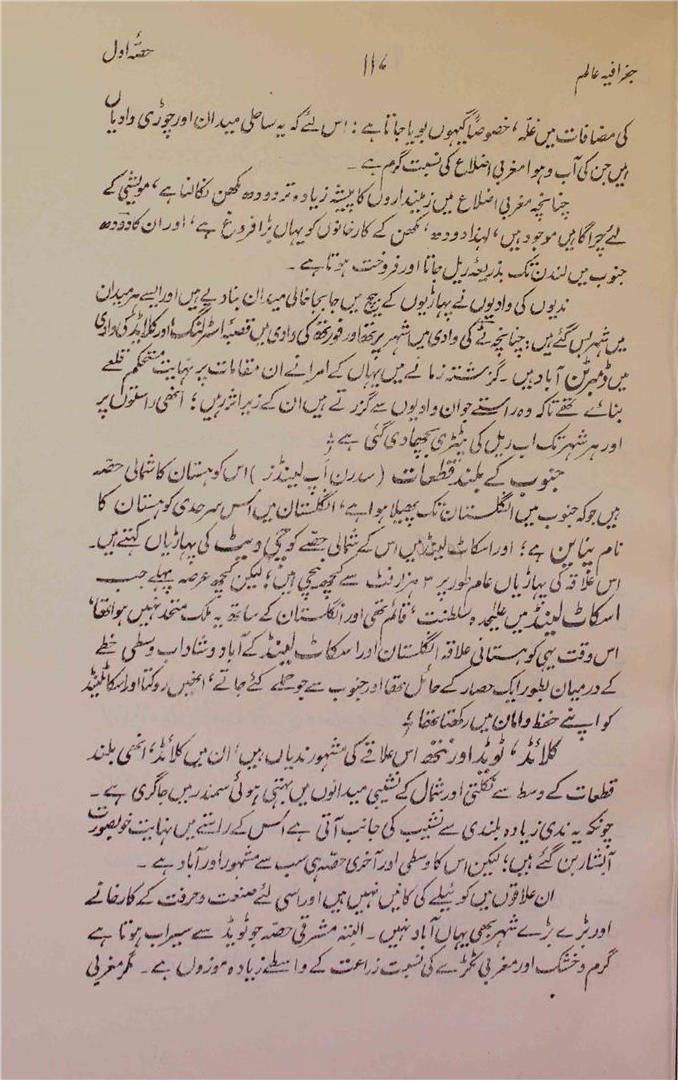 جغرافیہ عالم
۱۱۷
حصّۂ اول
کی مضافات میں غلّہ، خصوصاً گیہوں بویا جاتا ہے: اس لئے کہ یہ ساحلی میدان اور چوڑی وادیاں
ہیں جن کی آب و ہوا مغربی اضلاع کی نسبت گرم ہے۔
چنانچہ مغربی اضلاع میں زمینداروں کا پیشہ زیادہ تر دودھ مکھن نکالنا ہے، مویشی کے
لئے چراگاہیں موجود ہیں، لہٰذا دودھ، مکھن کے کارخانوں کو یہاں بڑا فروغ ہے، اور ان کا دودھ
جنوب میں لندن تک بذریعۂ ریل جاتا اور فروخت ہوتا ہے۔
ندیوں کی وادیوں نے پہاڑیوں کے بیچ میں جا بجا خالی میدان بنا دیے ہیں اور ایسے ہر میدان
میں شہر بس گئے ہیں: چنانچہ ٹے کی وادی میں شہر پرتھ اور فورتھ کی وادی میں قصبۂ اسٹرلنگ اور کلائڈ کی وادی
میں ڈمبرٹن آباد ہیں۔ گزشتہ زمانے میں یہاں کے امرا نے ان مقامات پر نہایت مستحکم قلعے
بنائے تھے تاکہ وہ راستے جو ان وادیوں سے گزرتے ہیں ان کے زیر اثر رہیں؛ انھی راستوں پر
اور ہر شہر تک اب ریل کی پٹری بچھا دی گئی ہے؛
جنوب کے بلند قطعات (سدرن اَپ لینڈز) اس کوہستان کا شمالی حصّہ
ہیں جو کہ جنوب میں انگلستان تک پھیلا ہوا ہے، انگلستان میں اس سرحدی کوہستان کا
نام پناین ہے؛ اور اسکاٹ لینڈ میں اس کے شمالی حصّے کو چی ویٹ کی پہاڑیاں کہتے ہیں۔
اس علاقہ کی پہاڑیاں عام طور پر ۳ ہزار فٹ سے کچھ نیچی ہیں؛ لیکن کچھ عرصہ پہلے جب
اسکاٹ لینڈ میں علیحدہ سلطنت، قائم تھی اور انگلستان کے ساتھ یہ ملک متحد نہیں ہوا تھا،
اس وقت یہی کوہستانی علاقہ انگلستان اور اسکاٹ لینڈ کے آباد و شاداب وسطی خطے
کے درمیان بطور ایک حصار کے حائل تھا اور جنوب سے جو حملے کئے جاتے، انھیں روکتا اور اسکاٹلینڈ
کو اپنے حفظ و امان میں رکھتا تھا؛
کلائڈ، ٹویڈ اور نتھ اس علاقے کی مشہور ندیاں ہیں، ان میں کلائڈ، انھی بلند
قطعات کے وسط سے نکلتی اور شمال کے نشیبی میدانوں میں بہتی ہوئی سمندر میں جا گری ہے۔
چونکہ یہ ندی زیادہ بلندی سے نشیب کی جانب آتی ہے اس کے راستے میں نہایت خوبصورت
آبشار بن گئے ہیں؛ لیکن اس کا وسطی اور آخری حصّہ ہی سب سے مشہور اور آباد ہے۔
ان علاقوں میں کوئیلے کی کانیں نہیں ہیں اور اسی لئے صنعت و حرفت کے کارخانے
اور بڑے بڑے شہر بھی یہاں آباد نہیں۔ البتہ مشرقی حصّہ جو ٹویڈ سے سیراب ہوتا ہے
گرم و خشک اور مغربی ٹکڑے کی نسبت زراعت کے واسطے زیادہ موزوں ہے۔ مگر مغربی